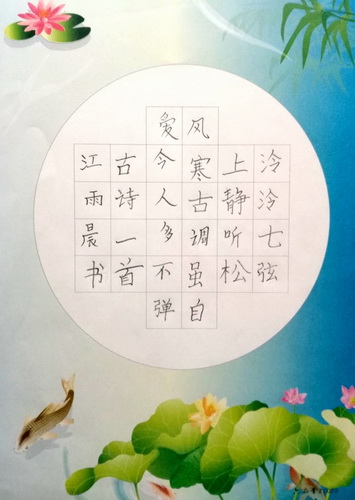 泠泠七弦
上静听松
风寒古调虽自
爱今人多不弹
古诗一首
江雨晨书